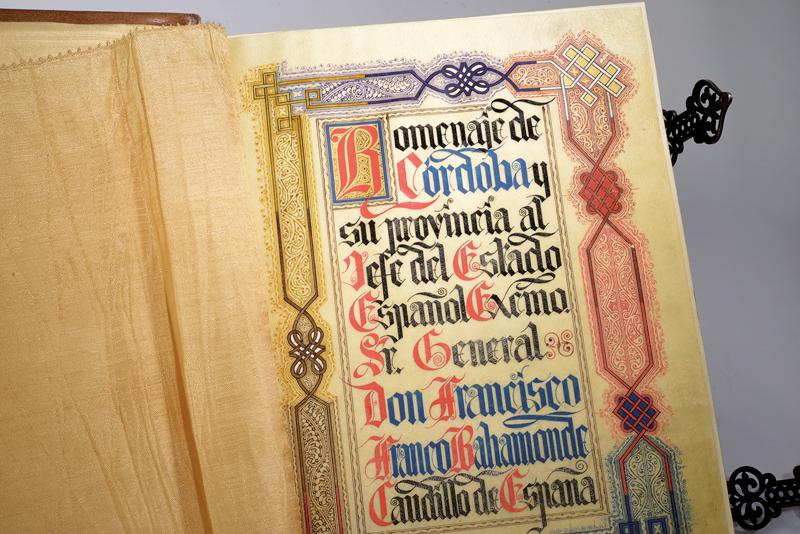 Homenaje de
Córdoba y
su provincia al
Jefe del Estado
Español Excmo.
Sr. General
Don Francisco
Franco Bahamonde
Caudillo de España